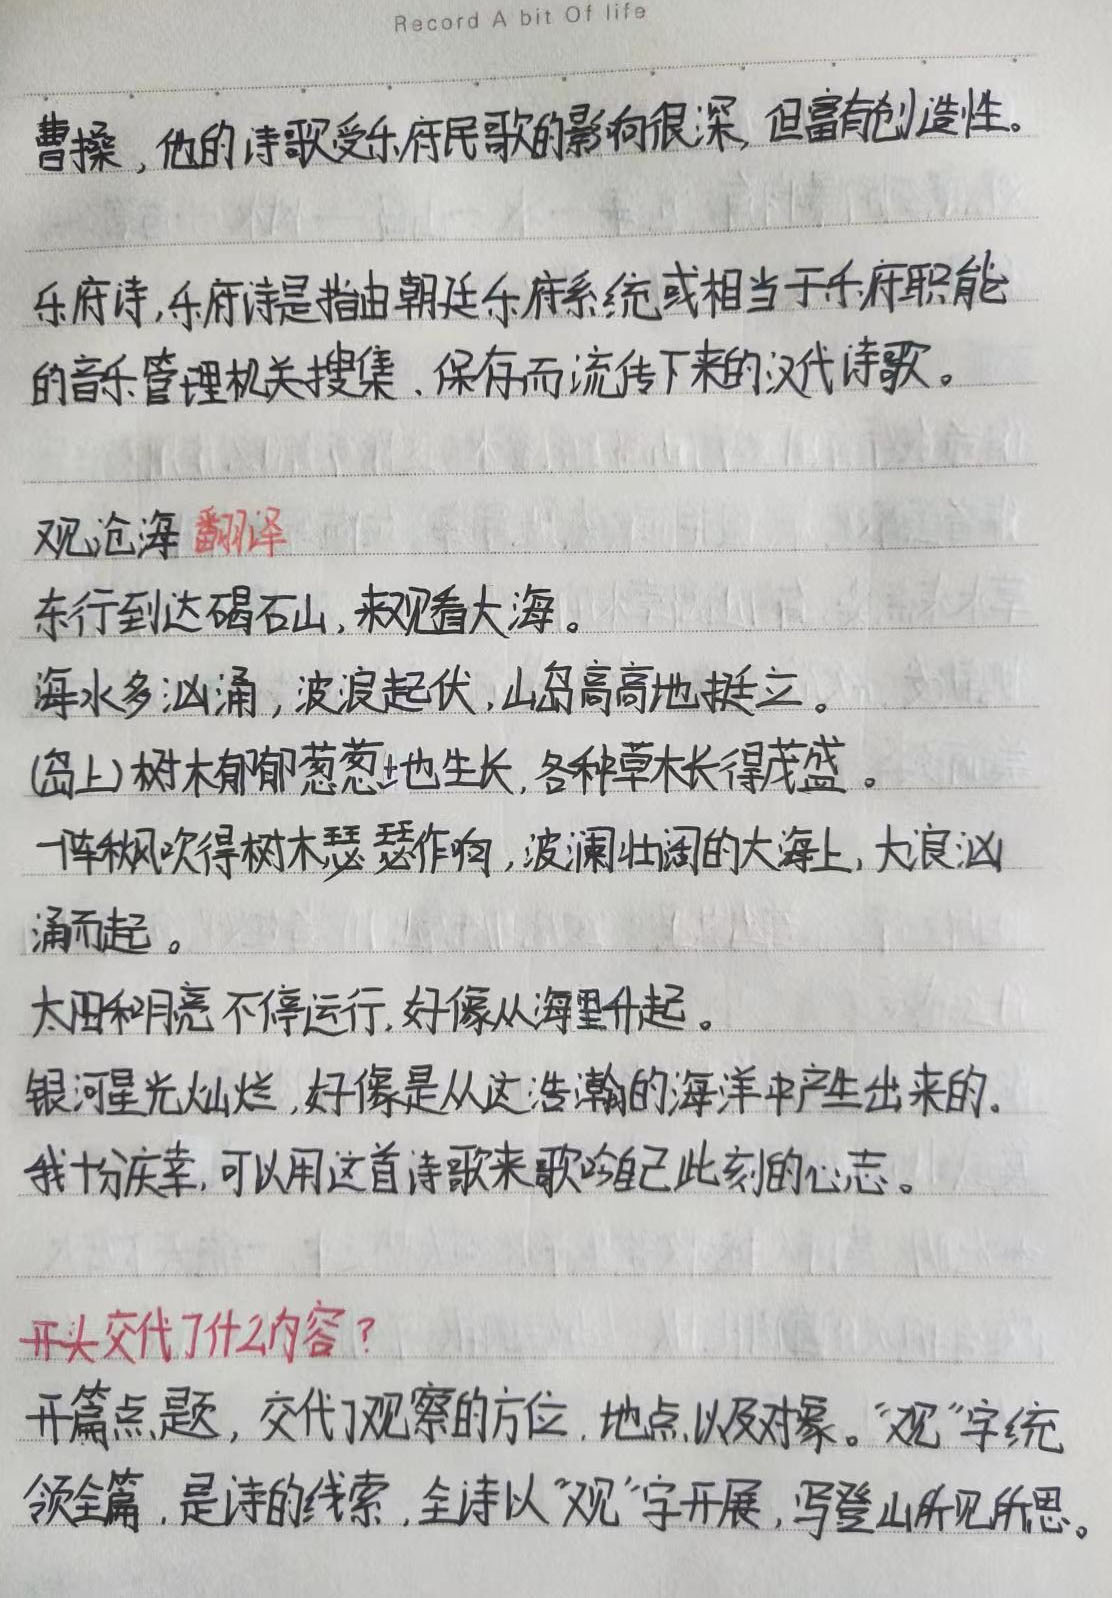 Record A bit Of life
曹操，他的诗歌受乐府民歌的影响很深，但富有创造性。
乐府诗，乐府诗是指由朝廷乐府系统或相当于乐府职能
的音乐管理机关搜集、保存而流传下来的汉代诗歌。
观沧海 翻译
东行到达碣石山，来观看大海。
海水多汹涌，波浪起伏，山岛高高地挺立。
(岛上)树木郁郁葱葱地生长，各种草木长得茂盛。
一阵秋风吹得树木瑟瑟作响，波澜壮阔的大海上，大浪汹
涌而起。
太阳和月亮不停运行，好像从海里升起。
银河星光灿烂，好像是从这浩瀚的海洋中产生出来的。
我十分庆幸，可以用这首诗歌来歌吟自己此刻的心志。
开头交代了什么内容？
开篇点题，交代了观察的方位、地点以及对象。“观”字统
领全篇，是诗的线索，全诗以“观”字开展，写登山所见所思。